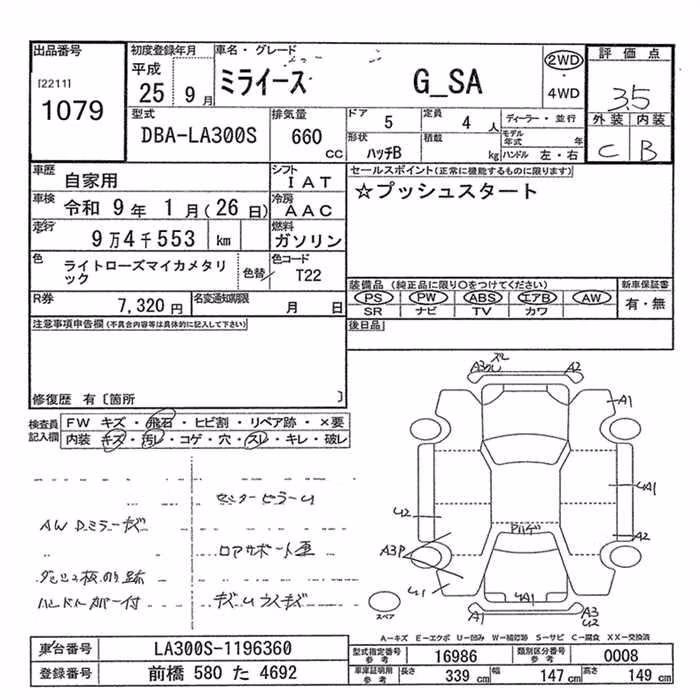 出品番号
[2211]
1079
初度登録年月
平成
25 9月
車名・グレード
ミライース G_SA
2WD
・
4WD
評価点
3.5
外装 内装
C B
型式
DBA-LA300S
排気量
660
cc
ドア 5
定員 4 人
形状 ハッチB
積載 kg
ディーラー・並行
モデル年式 年
ハンドル 左・右
車歴 自家用
シフト IAT
車検 令和 9年 1月(26日)
冷房 AAC
走行 9万4千553 km
燃料 ガソリン
色 ライトローズマイカメタリック
色替
色コード T22
R券 7,320円
名変通知期限 月 日
セールスポイント(正常に機能するものに限ります)
☆プッシュスタート
装備品(純正品に限り○をつけてください)
PS PW ABS エアB AW
SR ナビ TV カワ
新車保証書
有・無
後日品
注意事項申告欄(不具合内容等は具体的に記入して下さい)
修復歴 有〔箇所 〕
検査員記入欄
FW キズ・飛石・ヒビ割・リペア跡・×要
内装 キズ・汚レ・コゲ・穴・スレ・キレ・破レ
センターピラーU
AW Dミラーキズ
ロアサポート歪
ハンドルカバー付
キズUうスキズ
A3 A2
A1
UA1
A2
U2
A3P
U1
UA1
A1
A3
U2
スペア
A-キズ E-エクボ U-凹み W-補修跡 S-サビ C-腐食 XX-交換済
車台番号 LA300S-1196360
登録番号 前橋 580 た 4692
型式指定番号参考 16986
類別区分番号参考 0008
車庫証明用参考 長さ 339 cm 幅 147 cm 高さ 149 cm